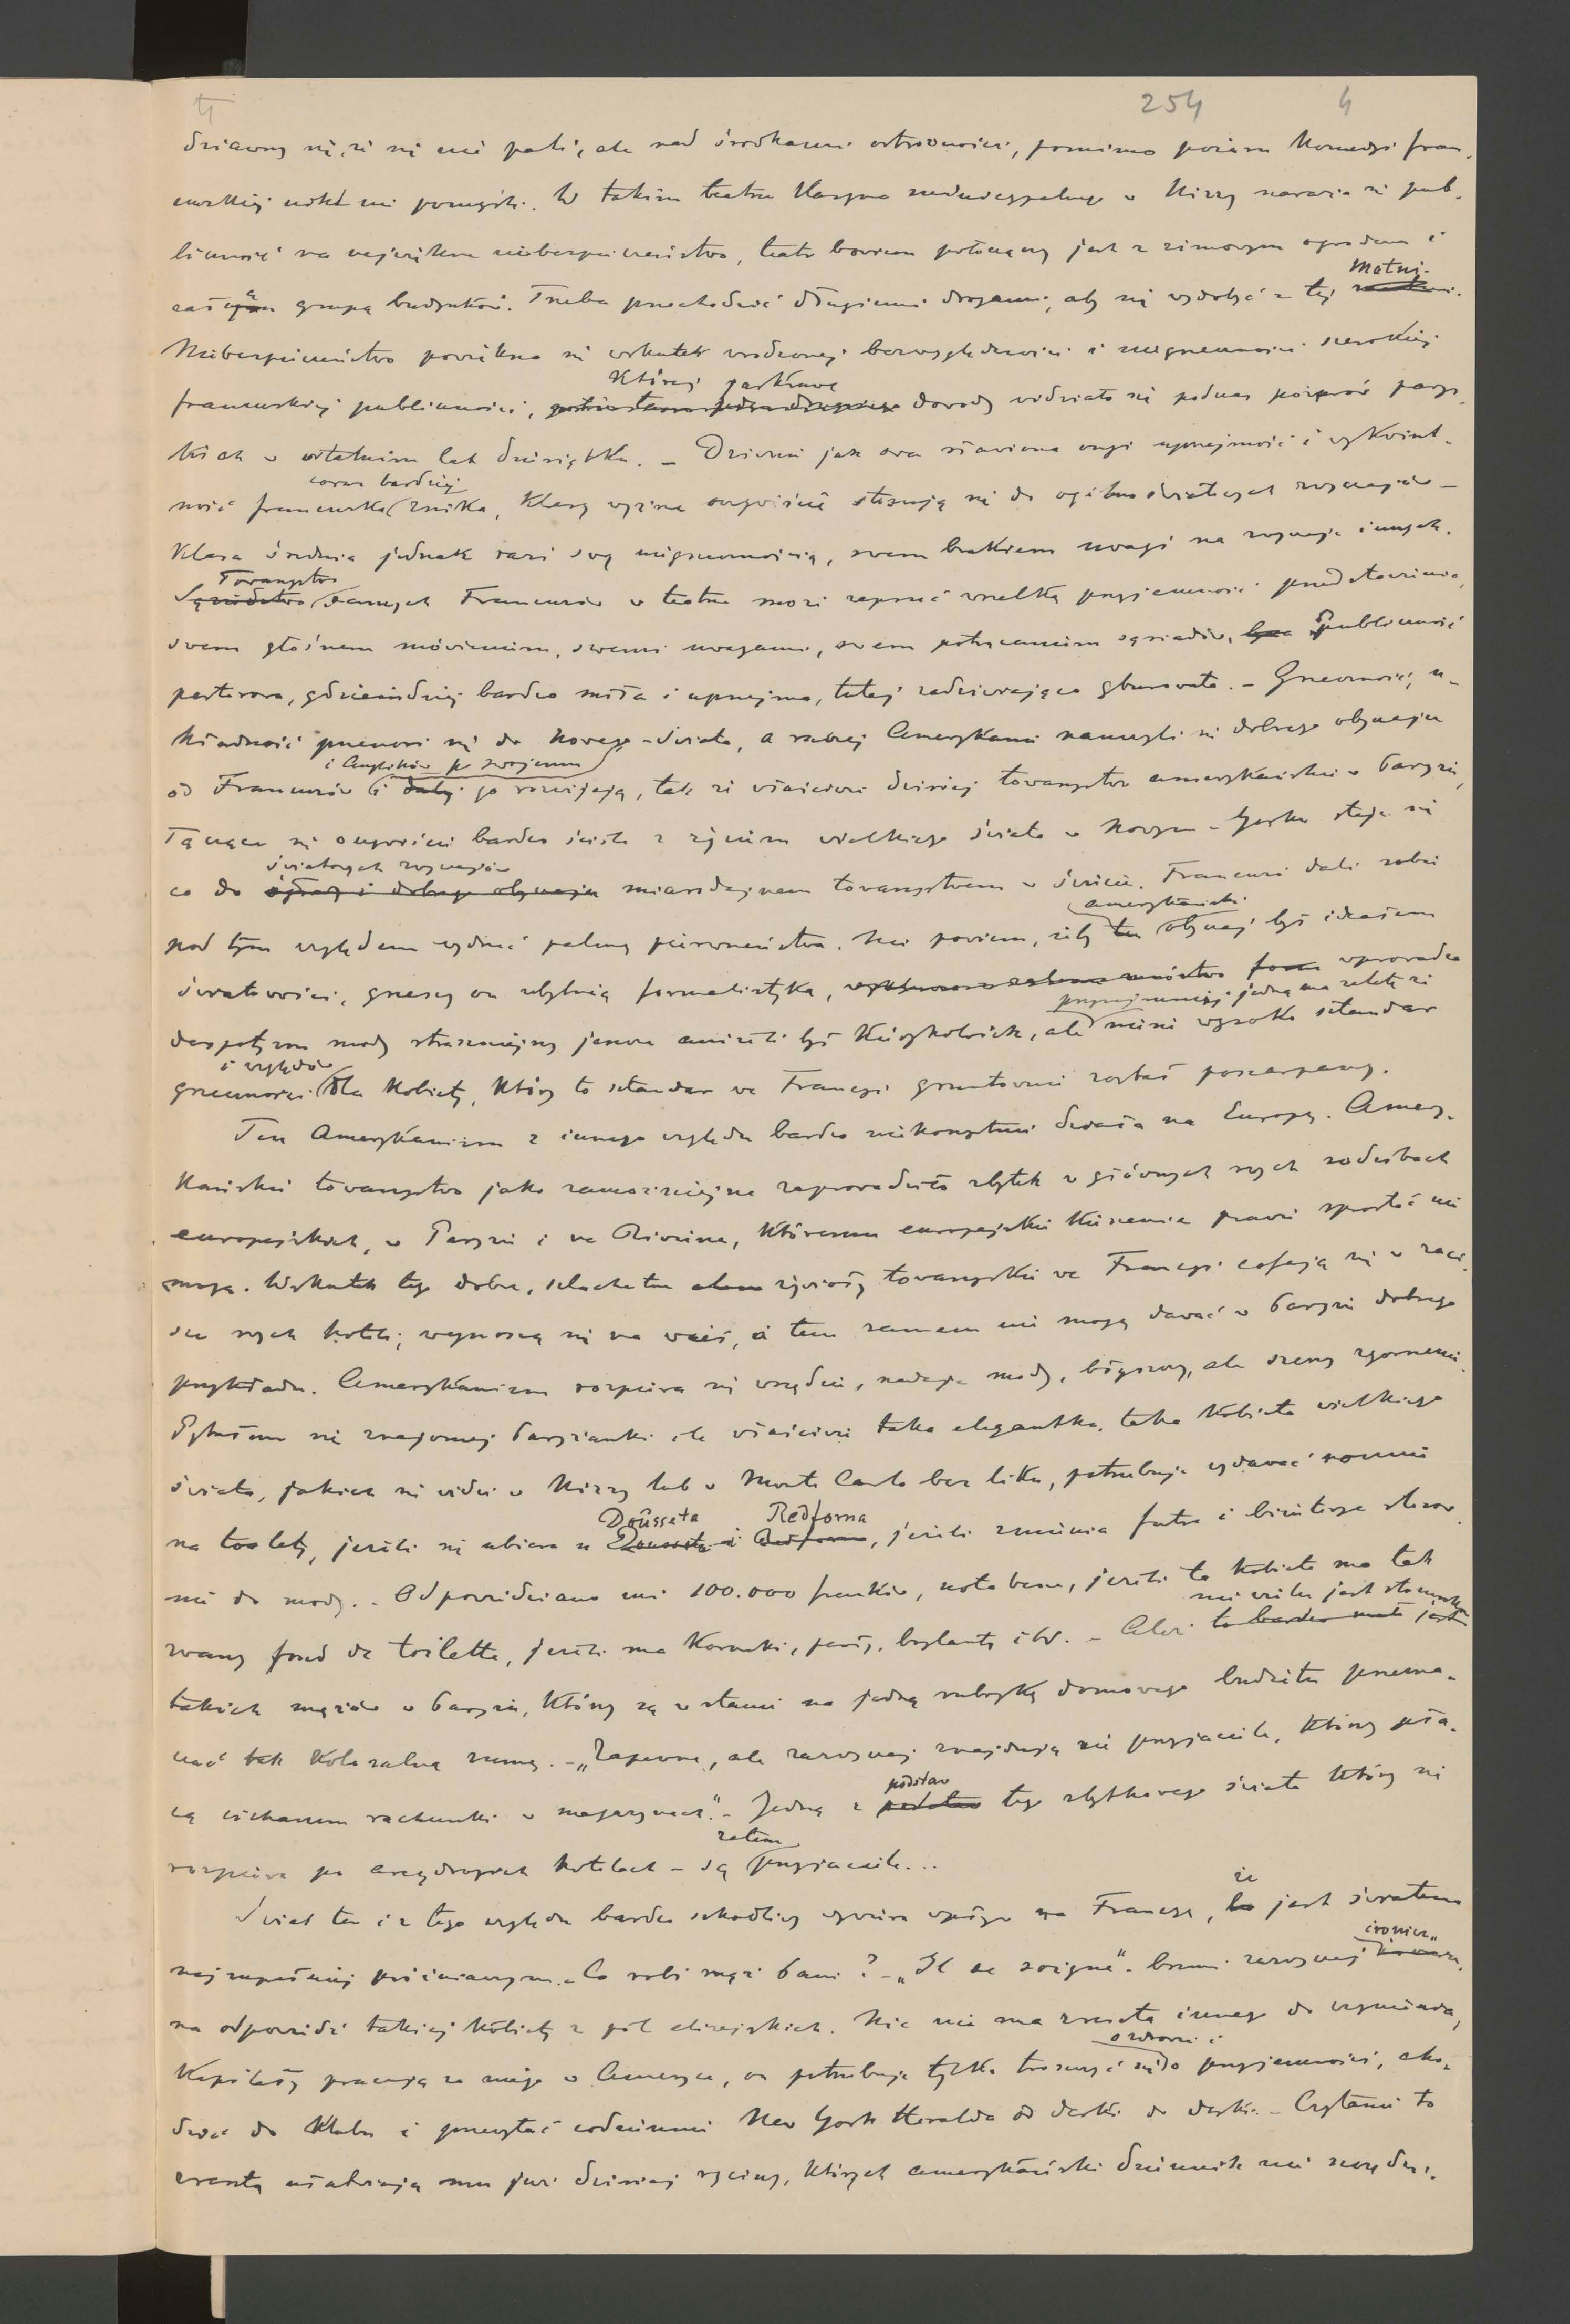 4
254 4
dziawszy się, że się nie pali, ale nad środkami ostrożności, pomimo pożaru Komedyi fran-
cuskiej nikt nie pomyśli. W takim teatrze Kasyna municypalnego w Nizzy naraża się pub-
liczność na największe niebezpieczeństwo, teatr bowiem połączony jest z zimowym ogrodem i
całą grupą budynków. Trzeba przechodzić długiemi drogami, aby się wydobyć z tej matni.
Niebezpieczeństwo powiększa się wskutek wrodzonej bezwzględności i niegrzeczności szerokiej
francuskiej publiczności, której jaskrawe dowody widziało się podczas pożarów parys-
kich w ostatnim lat dziesiątku. – Dziwnie jak owa sławiona ongi uprzejmość i wykwint-
ność francuska coraz bardziej znika, klasy wyższe oczywiście stosują się do ogólno światowych zwyczajów –
klasa średnia jednak razi swą niegrzecznością, swem brakiem uwagi na zwyczaje innych.
Towarzystwo samych Francuzów w teatrze może zepsuć wszelką przyjemność przedstawienia,
swem głośnem mówieniem, swemi uwagami, swem potrącaniem sąsiadów, publiczność
parterowa, gdzieindziej bardzo miła i uprzejma, tutaj zadziwiająco gburowata. – Grzeczność, u-
kładność przenosi się do Nowego-Świata, a raczej Amerykanie nauczyli się dobrego obyczaju
od Francuzów i Anglików i po swojemu go rozwijają, tak że właściwie dzisiaj towarzystwo amerykańskie w Paryżu,
łączące się oczywiście bardzo ściśle z życiem wielkiego świata w Nowym-Yorku staje się
co do światowych zwyczajów miarodajnem towarzystwem w świecie. Francuzi dali sobie
pod tym względem wydrzeć palmę pierwszeństwa. Nie powiem, żeby amerykański obyczaj był ideałem
światowości, grzeszy on zbytnią formalistyką, wprowadza
despotyzm mody straszniejszy jeszcze aniżeli był kiedykolwiek, ale przynajmniej jedną ma zaletę że niesie wysoko sztandar
grzeczności i względów dla kobiety, który to sztandar we Francyi gruntownie został poszarpany.
Ten Amerykanizm z innego względu bardzo niekorzystnie działa na Europę. Amery-
kańskie towarzystwo jako zamożniejsze zaprowadziło zbytek w głównych swych siedzibach
europejskich, w Paryżu i na Rivierze, któremu europejskie kieszenie prawie sprostać nie
mogą. Wskutek tego dobre, szlachetne żywioły towarzyskie we Francyi cofają się w zaci-
sze swych hoteli, wynoszą się na wieś, a tem samem nie mogą dawać w Paryżu dobrego
przykładu. Amerykanizm rozpiera się wszędzie, nadaje mody, błyszczy, ale szerzy zgorszenie.
Pytałem się znajomej Paryżanki ile właściwie taka elegantka, taka kobieta wielkiego
świata, jakich się widzi w Nizzy lub w Monte Carlo bez liku, potrzebuje wydawać rocznie
na toalety, jeżeli się ubiera u Doûsseta Redforna, jeżeli zmienia futra i biżuterye stosow-
nie do mody. – Odpowiedziano mi 100.000 franków, nota bene, jeżeli ta kobieta ma tak
zwany fond de toilette, jeżeli ma koronki, perły, brylanty itd. – Ależ nie wielu jest stosunkowo
takich mężów w Paryżu, którzy są w stanie na jedną rubrykę domowego budżetu przezna-
czać tak kolosalną sumę. – „Zapewne, ale zazwyczaj znajdują się przyjaciele, którzy pła-
cą cichaczem rachunki w magazynach". – Jedną z podstaw tego zbytkowego świata który się
rozpiera po arcydrogich hotelach – są zatem przyjaciele...
Świat ten i z tego względu bardzo szkodliwy wywiera wpływ na Francyę, że jest światem
najzupełniej próżniaczym. – Co robi mąż Pani? – „Il se soigne". brzmi zazwyczaj ironicz-
na odpowiedź takiej kobiety z pól elizejskich. Nic nie ma zresztą innego do czynienia,
kapitały pracują za niego w Ameryce, on potrzebuje tylko troszczyć się o zdrowie i o przyjemności, cho-
dzić do klubu i przeczytać codziennie New York Heralda od deski do deski. – Czytanie to
zresztą ułatwiają mu już dzisiaj ryciny, których amerykański dziennik nie szczędzi.